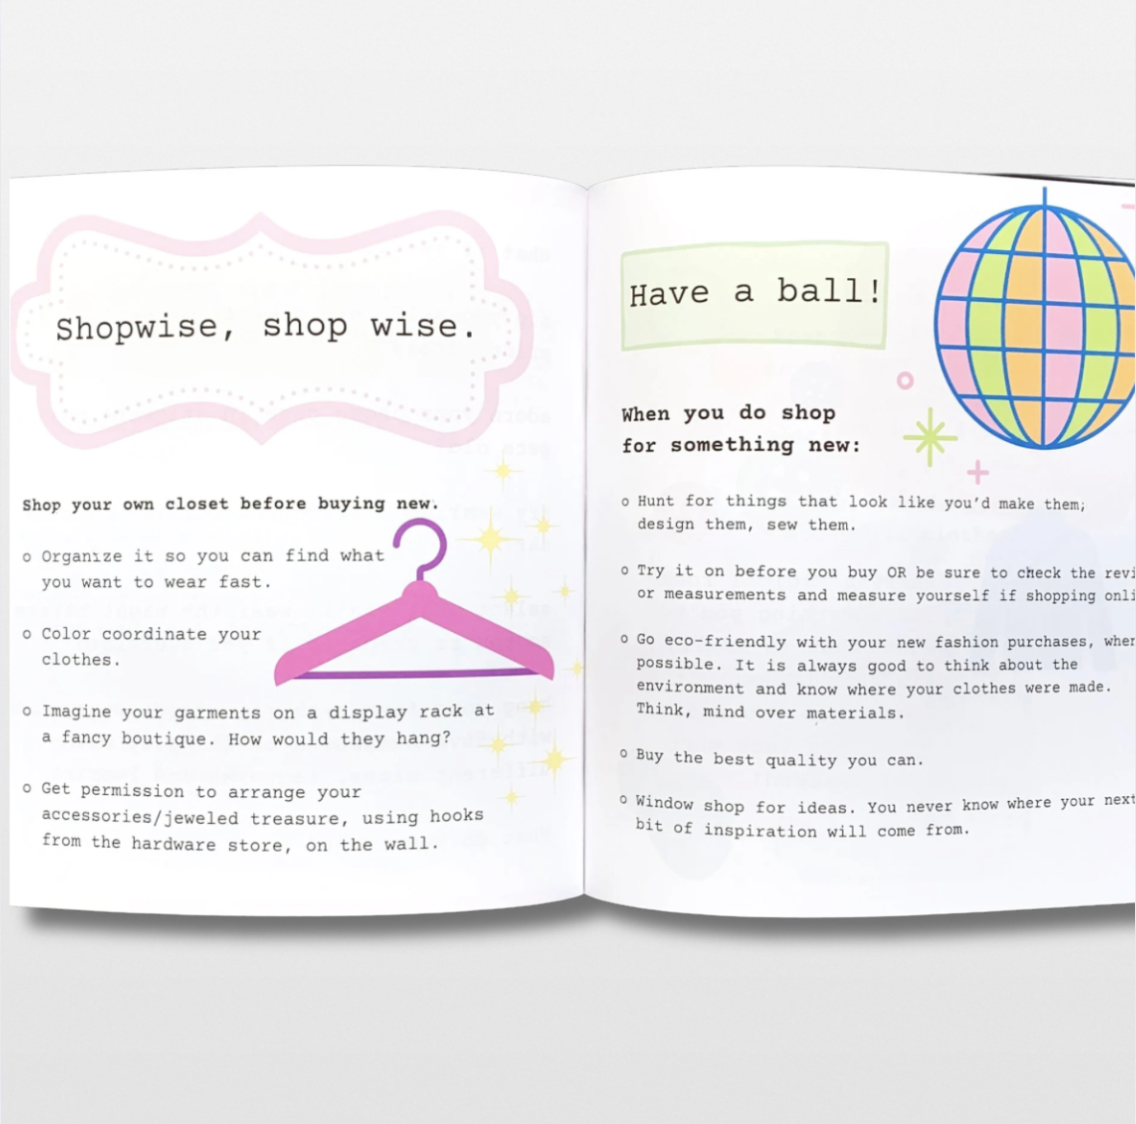 Shopwise, shop wise.
Shop your own closet before buying new.
o Organize it so you can find what
you want to wear fast.
o Color coordinate your
clothes.
o Imagine your garments on a display rack at
a fancy boutique. How would they hang?
o Get permission to arrange your
accessories/jeweled treasure, using hooks
from the hardware store, on the wall.
Have a ball!
When you do shop
for something new:
o Hunt for things that look like you'd make them;
design them, sew them.
o Try it on before you buy OR be sure to check the revi
or measurements and measure yourself if shopping onli
o Go eco-friendly with your new fashion purchases, when
possible. It is always good to think about the
environment and know where your clothes were made.
Think, mind over materials.
o Buy the best quality you can.
o Window shop for ideas. You never know where your next
bit of inspiration will come from.